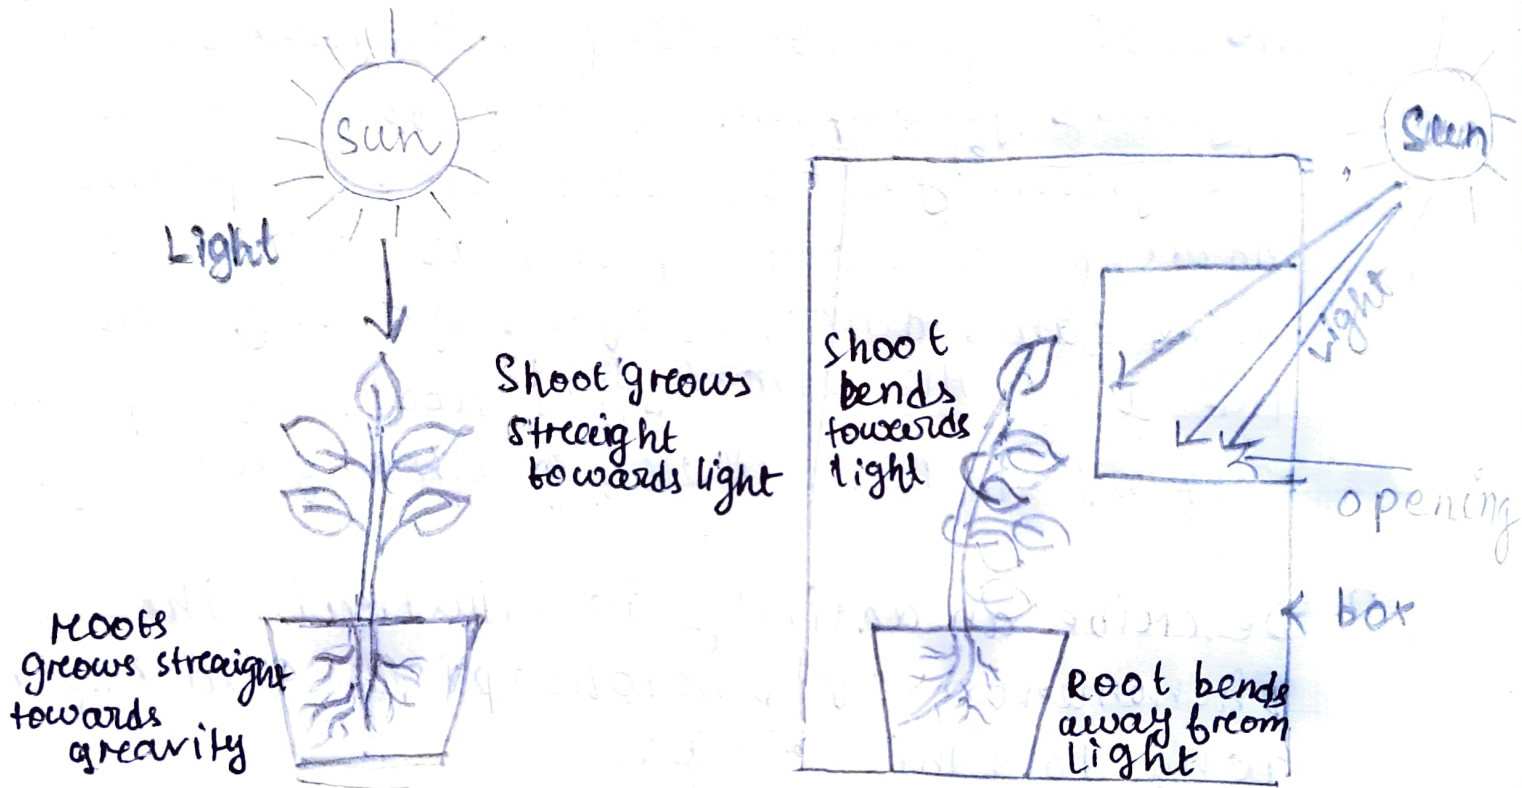 Sun
Light
Shoot grows
straight
towards light
roots
grows straight
towards
gravity
Sun
Light
Shoot
bends
towards
light
opening
box
Root bends
away from
light